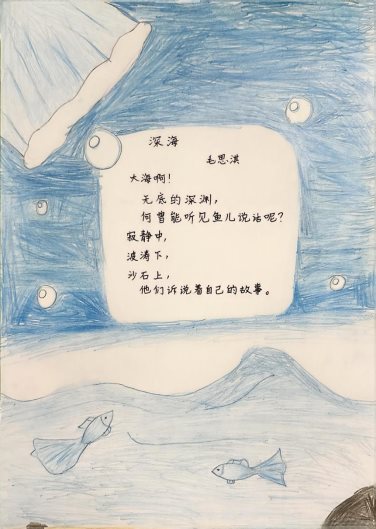 深海
毛思淇
大海啊！
无底的深渊，
何曾能听见鱼儿说话呢？
寂静中，
波涛下，
沙石上，
他们诉说着自己的故事。